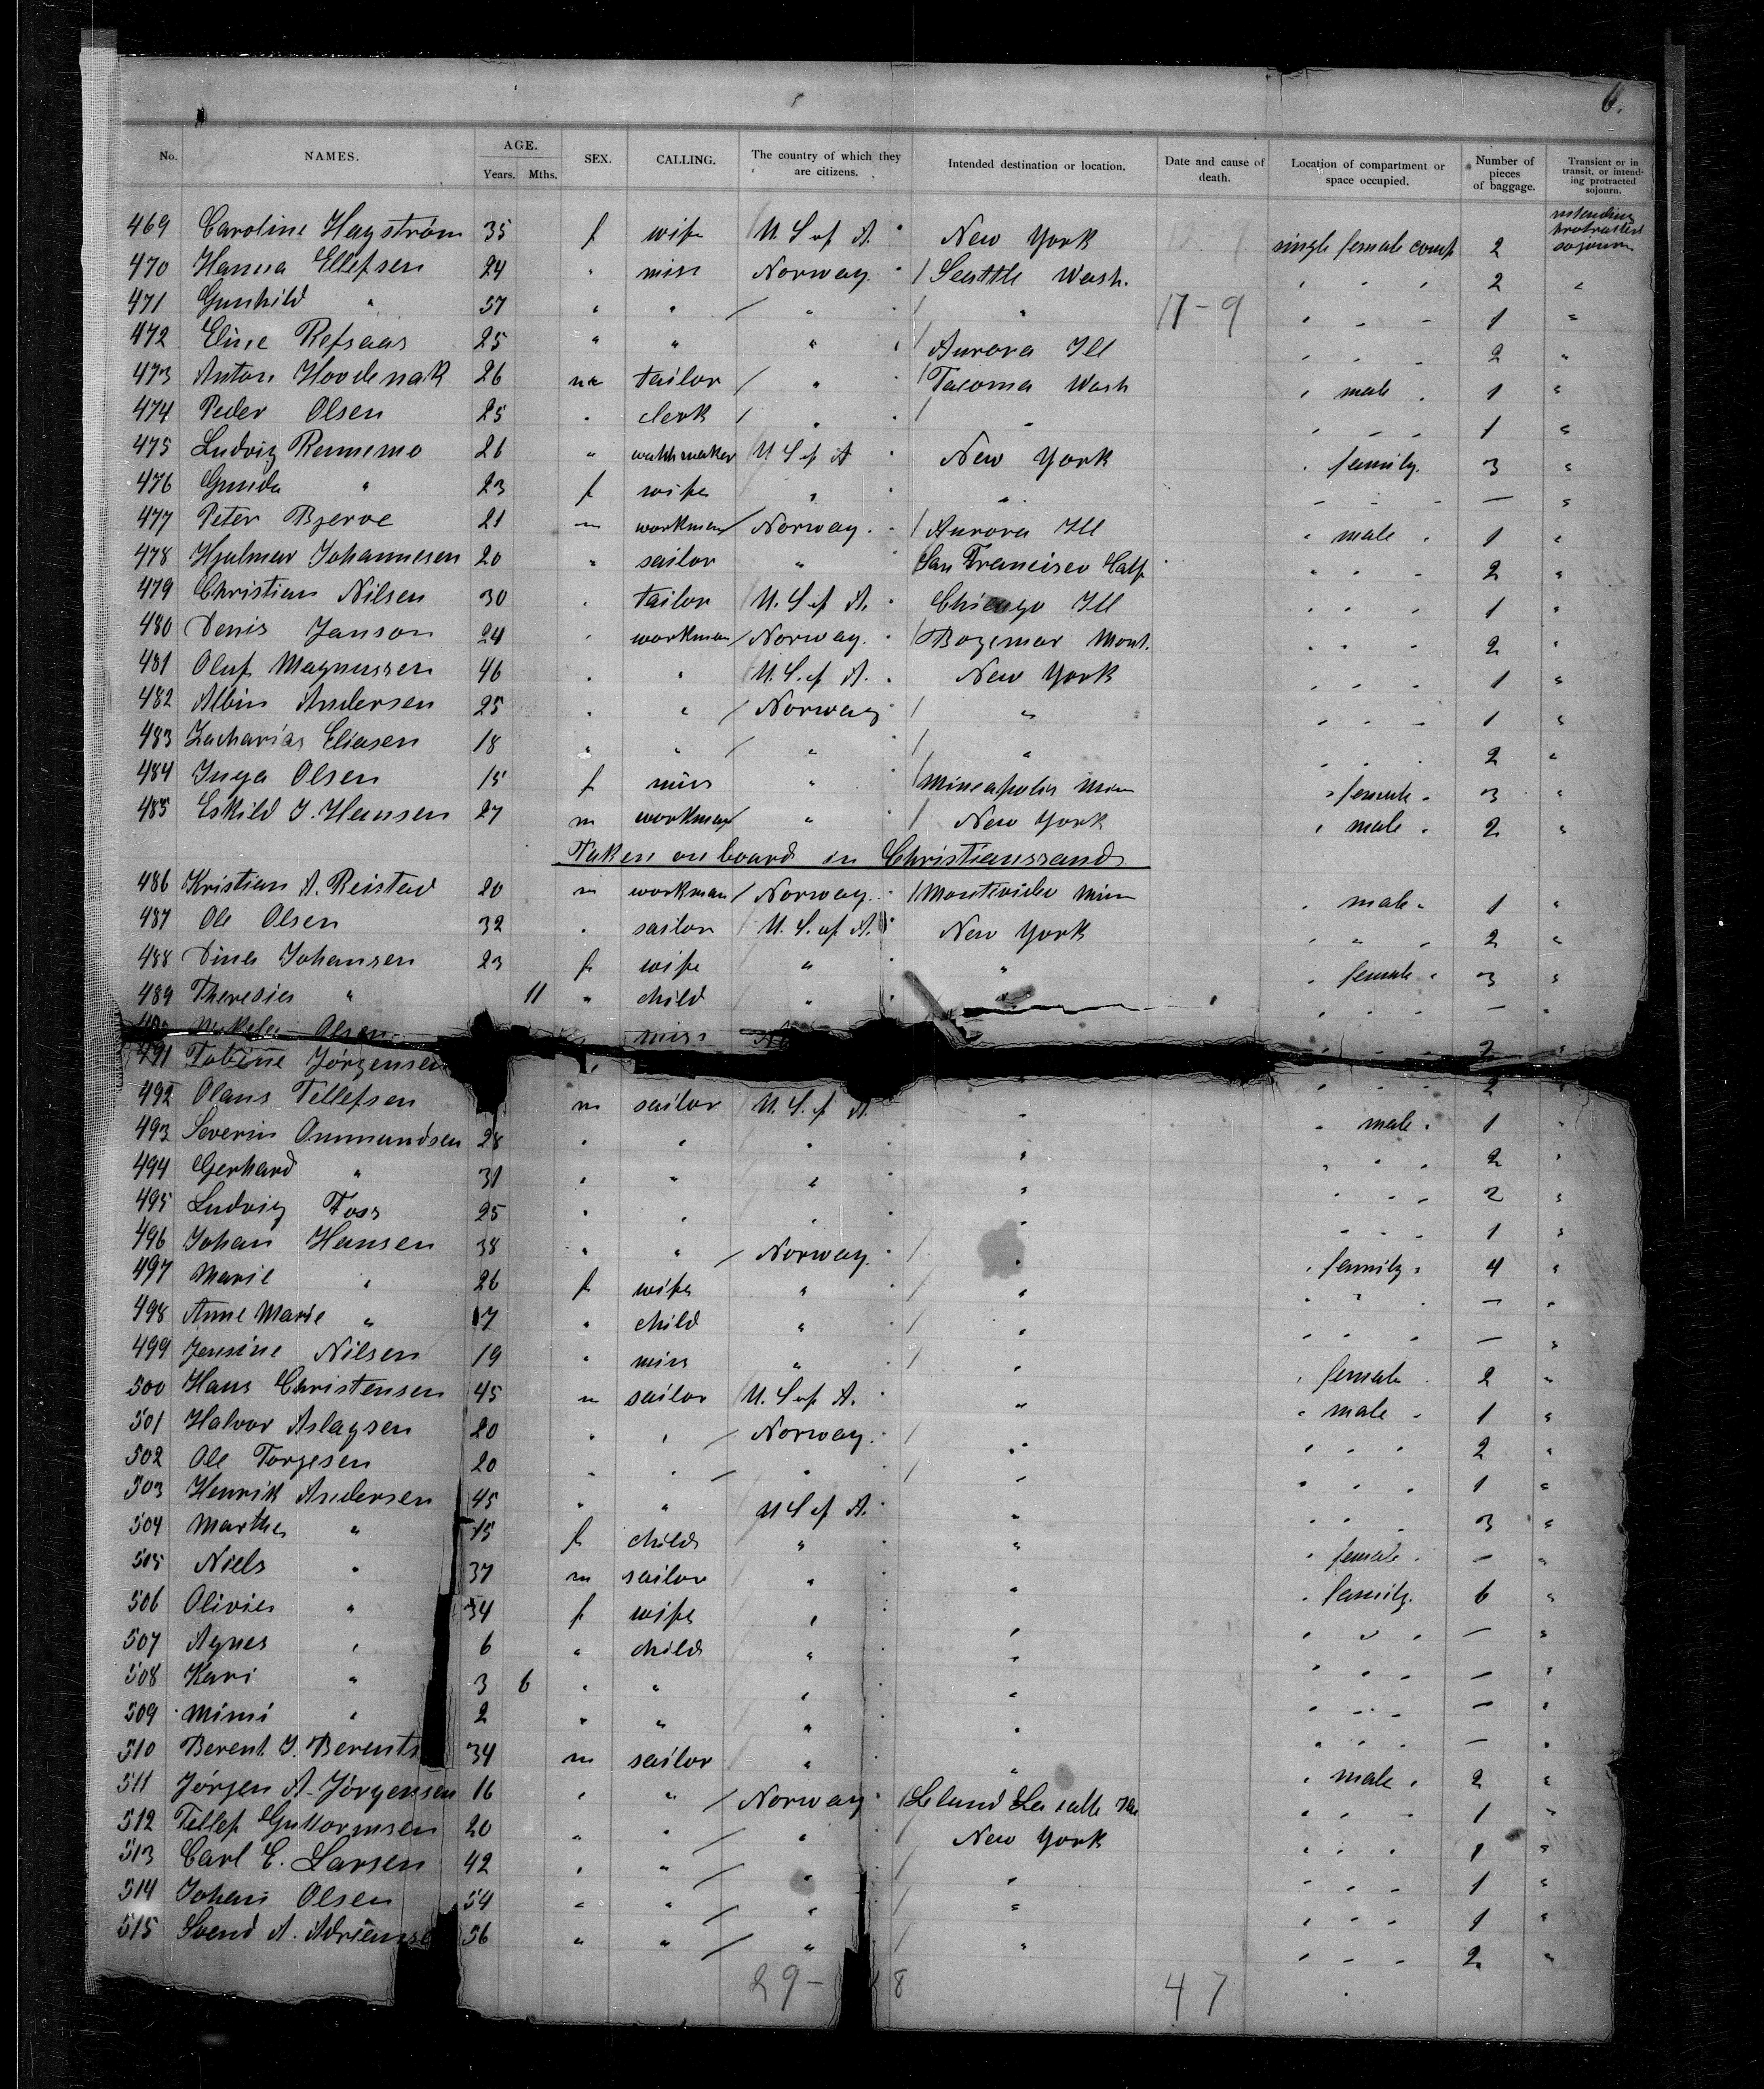 6.
No. NAMES. AGE. Years. Mths. SEX. CALLING. The country of which they are citizens. Intended destination or location. Date and cause of death. Location of compartment or space occupied. Number of pieces of baggage. Transient or in transit, or intending protracted sojourn.
469 Caroline Hagström 35 f wife U. S. of A. New York single female comp 2 intending protracted sojourn
470 Hanna Ellefsen 24 " miss Norway / Seattle Wash. " " " 2 "
471 Gunhild " 57 " " / " / " 17-9 " " " 1 "
472 Eline Refsaas 25 " " " / Aurora Ill " " " 2 "
473 Anton Hovdenak 26 m tailor / " / Tacoma Wash " male " 1 "
474 Peder Olsen 25 " clerk / " / " " " " 1 "
475 Ludvig Rennemo 26 " U S of A New York " family. 3 "
476 Gunda " 23 f wife " " " " " — "
477 Peter Bjerve 21 m workman / Norway. / Aurora Ill " male " 1 "
478 Hjalmar Johannesen 20 " sailor " San Francisco Calf " " " 2 "
479 Christian Nilsen 30 " tailor U. S of A. Chicago Ill " " " 1 "
480 Denis Janson 24 " workman / Norway. / Bozeman Mont. " " " 2 "
481 Oluf Magnussen 46 " " U. S. of A. New York " " " 1 "
482 Albin Andersen 25 " " / Norway / " " " " 1 "
483 Zacharias Eliasen 18 " " / " / " " " " 2 "
484 Inga Olsen 15 f miss " / Mineapolis Minn " female " 3 "
485 Eskild J. Hansen 27 m workman / " / New York " male " 2 "
Taken on board in Christianssand
486 Kristian A. Reistad 20 m workman / Norway. / Montevideo Minn " male " 1 "
487 Ole Olsen 32 " sailor U. S. of A. New York " " " 2 "
488 Dina Johansen 23 f wife " " " female " 3 "
489 Theresia " 11 " child " " " " " — "
Olsen miss " " " 2 "
491 Tobine Jörgensen " " " 2 "
492 Olaus Tellefsen m sailor U. S. of A. " " male " 1 "
493 Severin Ommundsen 28 " " " " " " " 2 "
494 Gerhard " 31 " " " " " " " 2 "
495 Ludvig Foss 25 " " " " " " " 1 "
496 Johan Hansen 38 " " / Norway. / " " family " 4 "
497 Marie " 26 f wife " / " " " " — "
498 Anne Marie " 17 " child " / " " " " — "
499 Jensine Nilsen 19 " miss " / " " female " 2 "
500 Hans Christensen 45 m sailor U. S of A. " " male " 1 "
501 Halvor Aslagsen 20 " " / Norway. / " " " " 2 "
502 Ole Torjesen 20 " " / " / " " " " 1 "
503 Henrik Andersen 45 " " U S of A. " " " " 3 "
504 Martha " 15 f child " " " female " — "
505 Niels " 37 m sailor " " " family. 6 "
506 Olivia " 34 f wife " " " " " — "
507 Agnes " 6 " child " " " " " — "
508 Kari " 3 6 " " " " " " " — "
509 Mimi " 2 " " " " " " " — "
510 Berent J. Berents 34 m sailor " " " male " 2 "
511 Jörgen A. Jörgensen 16 " " / Norway / Leland La salle Ill " " " 1 "
512 Tellef Guttormsen 20 " " / " / New York " " " 1 "
513 Carl E. Larsen 42 " " / " / " " " " 1 "
514 Johan Olsen 54 " " / " / " " " " 1 "
515 Svend A. 56 " " / " / " " " " 2 "
29 - 8 47